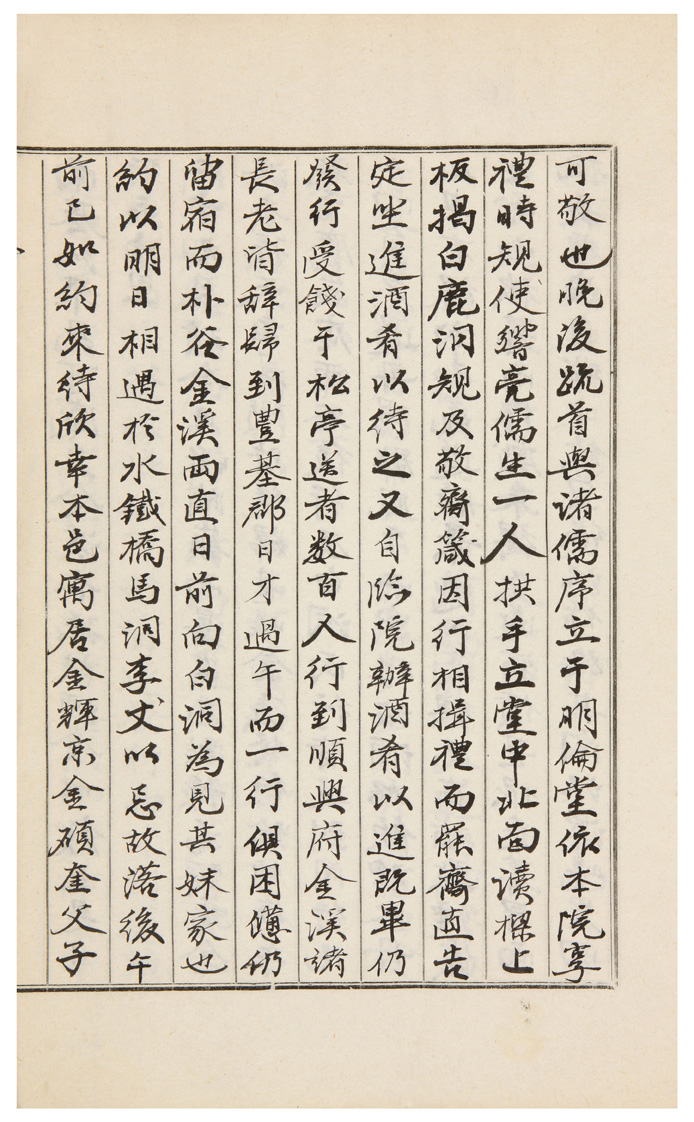 可敬也晩後疏首與諸儒序立于明倫堂依本院享
禮時規使響亮儒生一人拱手立堂中北面讀樑上
板揭白鹿洞規及敬齋箴因行相揖禮而罷齋直告
定坐進酒肴以待之又自臨院辦酒肴以進旣畢仍
發行受餞于松亭送者數百人行到順興府金溪諸
長老皆辭歸到豐基郡日才過午而一行俱困憊仍
留宿而朴谷金溪兩直日前向白洞為見其妹家也
約以明日相遇於水鐵橋馬洞李丈以忌故落後午
前已如約來待欣幸本邑寓居金輝京金碩奎父子